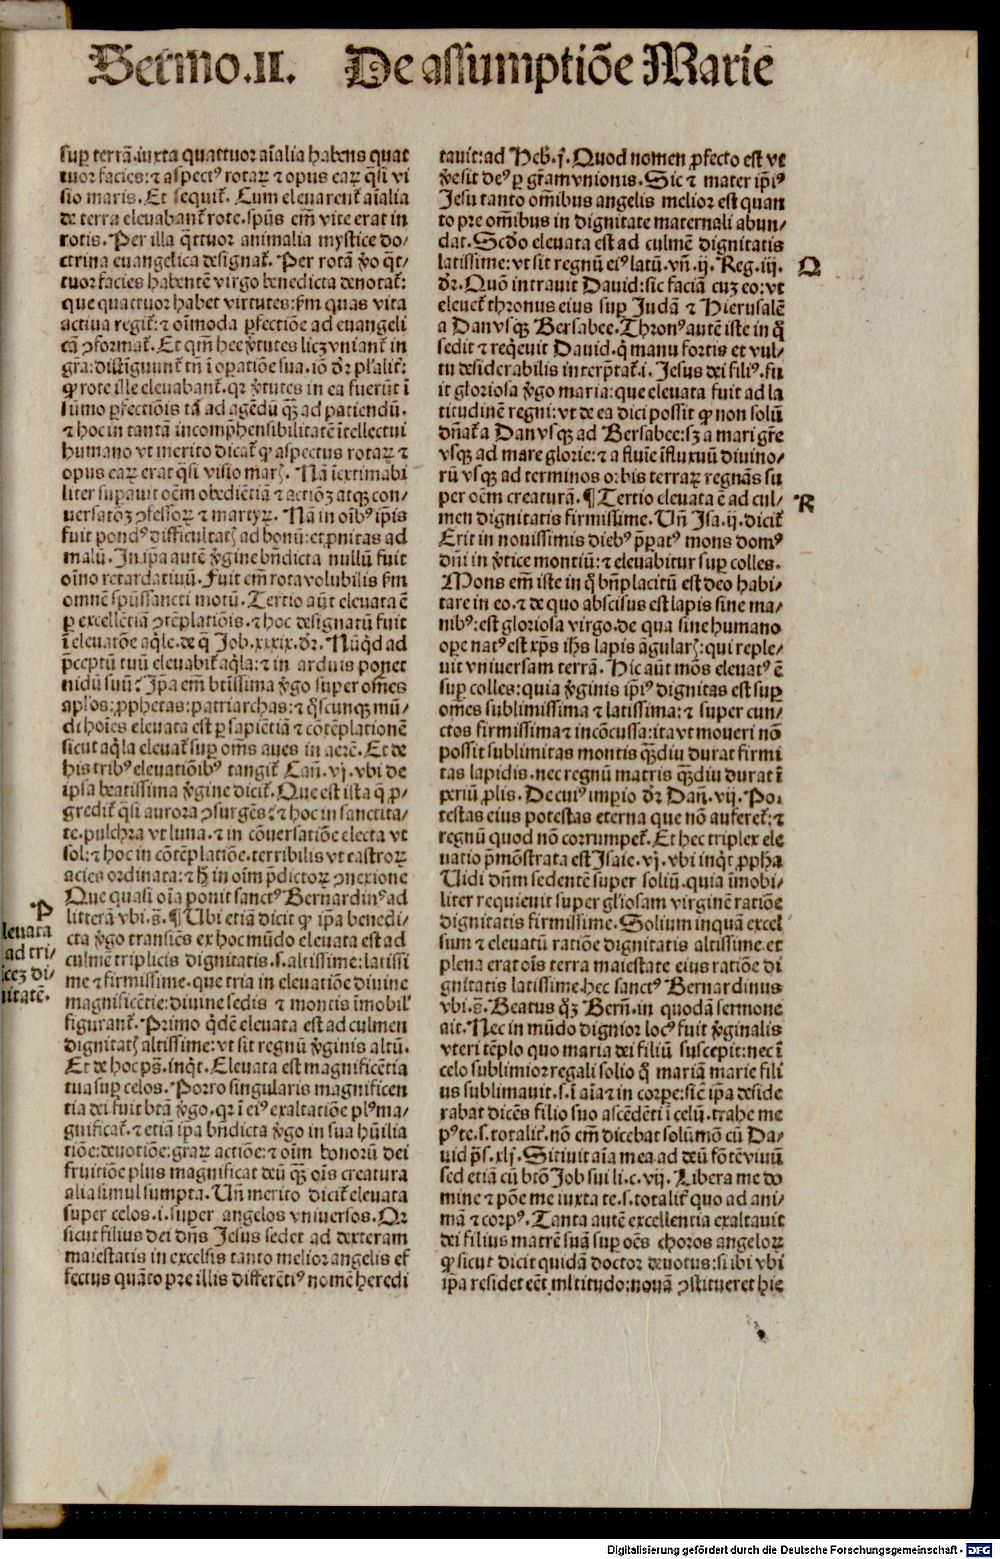 Sermo.II. De assumptiōe Marie
sup terrā.iuxta quattuor aīalia habens quat
tuor facies:⁊ aspectꝰ rotaꝝ ⁊ opus eaꝝ q̄si vi
sio maris. Et sequit̄. Cum eleuarent̄ aīalia
de terra eleuabant̄ rote.spūs em̄ vite erat in
rotis. Per illa q̄ttuor animalia mystice do⸗
ctrina euangelica designat̄. Per rotā ꝟo q̄t⸗
tuor facies habentē virgo benedicta denotat̄:
que quattuor habet virtutes:fm̄ quas vita
actiua regit̄:⁊ oīmoda ꝑfectiōe ad euangeli
cā ꝯformat̄. Et qm̄ hec ꝟtutes licꝫ vniant̄ in
gr̄a:distīguunt̄ tn̄ ī oꝑatiōe sua.iō dr̄ p̄salit̄:
ꝙ rote ille eleuabant̄.qꝛ ꝟtutes in ea fuerūt ī
sūmo ꝑfectiōis tā ad agēdū q̄ꝫ ad patiendū.
⁊ hoc in tantā incomp̄hensibilitatē ītellectui
humano vt merito dicat̄ ꝙ aspectus rotaꝝ ⁊
opus eaꝝ erat q̄si visio marꝭ. Nā īextimabi
liter suꝑauit oēm obediētiā ⁊ actiōꝫ atqꝫ con⸗
uersatōꝫ ꝯfessoꝝ ⁊ martyꝝ. Nā in oībꝰ ip̄is
fuit pondꝰ difficultatꝭ ad bonū:et ꝓnitas ad
malū. In ip̄a autē ꝟgine bn̄dicta nullū fuit
oīno retardatiuū. Fuit em̄ rota volubilis fm̄
omnē spūssancti motū. Tertio aūt eleuata ē
ꝑ excellētiā ꝯtēplatiōis.⁊ hoc designatū fuit
ī eleuatōe aq̄le.de q̄ Job.xxxix.dr̄. Nūq̄d ad
p̄ceptū tuū eleuabit̄ aq̄la:⁊ in arduis ponet
nidū suū? Ip̄a em̄ btīssima ꝟgo super om̄es
apl̄os:ꝓphetas:patriarchas:⁊ q̄scunqꝫ mū⸗
di hoīes eleuata est ꝑ sapiētiā ⁊ cōtēplationē
sicut aq̄la eleuat̄ suꝑ om̄s aues in aerē. Et de
his tribꝰ eleuatiōibꝰ tangit̄ Can̄.vj.vbi de
ipsa beatissima ꝟgine dicit̄. Que est ista q̄ ꝓ⸗
gredit̄ q̄si aurora ꝯsurgēs:⁊ hoc in sanctita⸗
te.pulchra vt luna.⁊ in cōuersatiōe electa vt
sol:⁊ hoc in cōtēplatiōe.terribilis vt castroꝝ
acies ordinata:⁊ ħ in oīm p̄dictoꝝ ꝯnexione
Que quasi oīa ponit sanctꝰ Bernardinꝰ ad
litterā vbi.s̄. ¶ Ubi etiā dicit ꝙ ip̄a benedi⸗
cta ꝟgo transiēs ex hoc mūdo eleuata est ad
culmē triplicis dignitatis.s.altissime:latissi
me ⁊ firmissime.que tria in eleuatiōe diuine
magnificētie:diuine sedis ⁊ montis īmobil̄
figurant̄. Primo q̄dē eleuata est ad culmen
dignitatꝭ altissime:vt sit regnū ꝟginis altū.
Et de hoc ps̄.inq̄t. Eleuata est magnificētia
tua suꝑ celos. Porro singularis magnificen
tia dei fuit btā ꝟgo.qꝛ ī eiꝰ exaltatiōe plꝰ ma⸗
gnificat̄.⁊ etiā ip̄a bn̄dicta ꝟgo in sua hūilia
tiōe:deuotiōe:graꝝ actiōe:⁊ oīm bonorū dei
fruitiōe plus magnificat deū q̄ꝫ oīs creatura
alia simul sumpta. Un̄ merito dicit̄ eleuata
super celos.i.super angelos vniuersos. Qꝛ
sicut filius dei dn̄s Jesus sedet ad dexteram
maiestatis in excelsis tanto melior angelis ef
fectus quāto pre illis differētiꝰ nomē heredi
P
leuata
ad tri⸗
icꝫ di⸗
nitatē.
tauit:ad Heb̄.j. Quod nomen ꝓfecto est vt
ꝟe sit deꝰ ꝑ gr̄am vnionis. Sic ⁊ mater ip̄iꝰ
Jesu tanto om̄ibus angelis melior est quan
to pre om̄ibus in dignitate maternali abun⸗
dat. Scdo eleuata est ad culmē dignitatis
latissime:vt sit regnū eiꝰ latū.vn̄.ij. Reg.iij.
dr̄. Quō intrauit Dauid:sic faciā cuꝫ eo:vt
eleuet̄ thronus eius suꝑ Judā ⁊ Hierusalē
a Dan vsqꝫ Bersabee. Thronꝰ autē iste in q̄
sedit ⁊ reqͥeuit Dauid.q̄ manu fortis et vul⸗
tu desiderabilis interp̄tat̄.i. Jesus dei filiꝰ.fu
it gloriosa ꝟgo maria:que eleuata fuit ad la
titudinē regni:vt de ea dici possit ꝙ non solū
dn̄at̄ a Dan vsqꝫ ad Bersabee:sꝫ a mari gr̄e
vsqꝫ ad mare glorie:⁊ a fluīe īfluxuū diuino⸗
rū vsqꝫ ad terminos orbis terraꝝ regnās su
per oēm creaturā. ¶ Tertio eleuata ē ad cul⸗
men dignitatis firmissime. Un̄ Isa.ij.dicit̄
Erit in nouissimis diebꝰ p̄ꝑatꝰ mons domꝰ
dn̄i in ꝟtice montiū:⁊ eleuabitur suꝑ colles.
Mons em̄ iste in q̄ bn̄placitū est deo habi⸗
tare in eo.⁊ de quo abscisus est lapis sine ma⸗
nibꝰ:est gloriosa virgo.de qua sine humano
oꝑe natꝰ est xp̄s ih̄s lapis āgularꝭ:qui reple⸗
uit vniuersam terrā. Hic aūt mōs eleuatꝰ ē
suꝑ colles:quia ꝟginis ip̄iꝰ dignitas est suꝑ
om̄es sublimissima ⁊ latissima:⁊ super cun⸗
ctos firmissima ⁊ incōcussa:ita vt moueri nō
possit sublimitas montis q̄ꝫdiu durat firmi
tas lapidis.nec regnū matris q̄ꝫdiu durat ī
periū ꝓlis. De cuiꝰ imꝑio dr̄ Dan̄.vij. Po⸗
testas eius potestas eterna que nō auferet̄:⁊
regnū quod nō corrumpet̄. Et hec triplex ele
uatio p̄mōstrata est Isaie.vj.vbi inq̄t ꝓpħa
Uidi dn̄m sedentē super soliū.quia īmobi⸗
liter requieuit super gl̄iosam virginē ratiōe
dignitatis firmissime. Solium inquā excel
sum ⁊ eleuatū ratiōe dignitatis altissime.et
plena erat oīs terra maiestate eius ratiōe di
gnitatis latissime.hec sanctꝰ Bernardinus
vbi.s̄. Beatus q̄ꝫ Bern̄.in quodā sermone
ait. Nec in mūdo dignior locꝰ fuit ꝟginalis
vteri tēplo quo maria dei filiū suscepit:nec ī
celo sublimior regali solio q̄ mariā marie fili
us sublimauit.s.ī aīa ⁊ in corpe:sic̄ ip̄a deside
rabat dicēs filio suo ascēdēti ī celū.trahe me
pꝰ te.s.totalit̄.nō em̄ dicebat solūmō cū Da⸗
uid p̄s.xlj. Sitiuit aīa mea ad deū fōtē viuū
sed etiā cū btō Job sui li.c.vij. Libera me do
mine ⁊ pōe me iuxta te.s.totalit̄ quo ad ani⸗
mā ⁊ corpꝰ. Tanta autē excellentia exaltauit
dei filius matrē suā suꝑ oēs choros angeloꝝ
ꝙ sicut dicit quidā doctor deuotus:si ibi vbi
ip̄a residet eēt ml̄titudo:nouā ꝯstitueret hie
Q
R
Digitalisierung gefördert durch die Deutsche Forschungsgemeinschaft - DFG